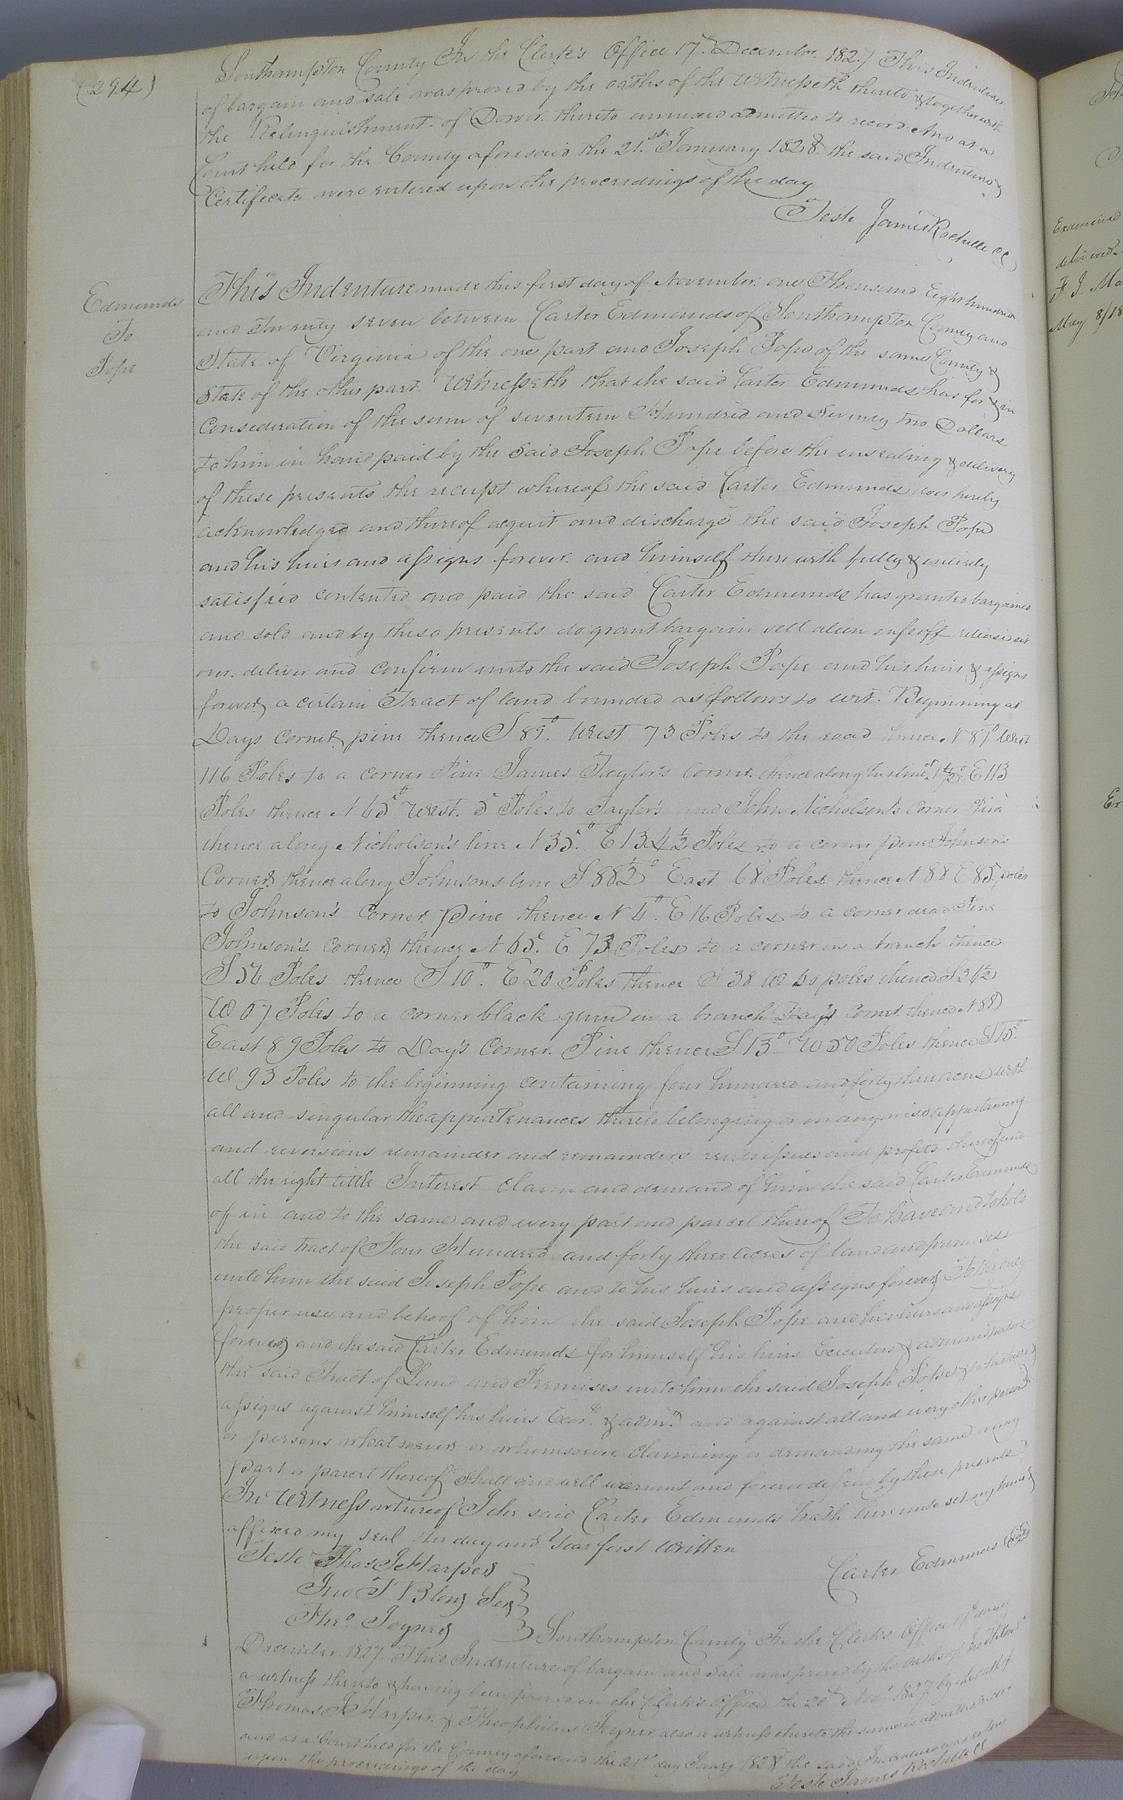 (294)
Southampton County In the Clerk's Office 17th December 1827 This Indenture
of bargain and sale was proved by the oaths of the witnesseth thereto & together with
the Relinquishment of Dower thereto annexed admitted to record And at a
Court held for the County aforesaid the 21st January 1828 the said Indenture &
Certificate were entered upon the proceedings of the day
Teste James Rochelle CC
Edmunds
To
Pope
This Indenture made this first day of November one Thousand Eight hundred
and Twenty seven between Carter Edmunds of Southampton County and
State of Virginia of the one part and Joseph Pope of the same County &
State of the other part Witnesseth that the said Carter Edmunds has for & in
Consideration of the sum of seventeen Hundred and Seventy two Dollars
to him in hand paid by the Said Joseph Pope before the ensealing & delivery
of these presents the receipt whereof the said Carter Edmunds does hereby
acknowledge and thereof acquit and discharge the said Joseph Pope
and his heirs and assigns forever and himself there with fully & entirely
satisfied contented and paid the said Carter Edmunds has granted bargained
and sold and by these presents do grant bargain sell alien enfeoff release
over deliver and confirm unto the said Joseph Pope and his heirs & assigns
forever a certain Tract of land bounded as follows to wit. Beginning at
Days Corner pine thence S 89° West 73 Poles to the road thence N 87° West
116 Poles to a corner Pine James Taylor's corner thence along his line E 113
Poles thence N 65° West. 5 Poles to Taylor's and John Nicholson's Corner Pine
thence along Nicholson's line N 35° E 134½ Poles to a corner pine Johnson's
Corner thence along Johnsons line S 88½° East 68 Poles thence N 88 E 85 poles
to Johnson's Corner Pine thence N 4° E 16 Poles to a corner dead Pine
Johnson's corner thence N 65. E 73 Poles to a corner in a branch thence
S 56 Poles thence S 10° E 20 Poles thence S 38 W 60 poles thence S 24½
W 67 Poles to a corner black gum in a branch Day's corner thence N 88
East 89 Poles to Day's Corner Pine thence S 13° W 50 Poles thence S 15°
W 93 Poles to the beginning containing four hundred and forty three acres with
all and singular the appurtenances thereto belonging or in any wise appertaining
and reversions remainder and remainders rents issues and profits thereof and
all the right title Interest claim and demand of him the said Carter Edmunds
of in and to the same and every part and parcel thereof To have and to hold
the said tract of Four Hundred and forty three acres of land and premises
unto him the said Joseph Pope and to his heirs and assigns forever To the only
proper use and behoof of him the said Joseph Pope and his heirs and assigns
forever and the said Carter Edmunds for himself his heirs Executors & administrators
the said Tract of Land and Premises unto him the said Joseph Pope & his heirs &
assigns against himself his heirs Exors & admrs and against all and every other person
or persons whatsoever or whomsoever claiming or demanding the same or any
part or parcel thereof Shall and will warrant and forever defend by these presents
In Witness whereof I the said Carter Edmunds hath hereunto set my hand &
affixed my seal the day and Year first Written
Teste Thos J Harper
Jno T Blow Ser
Theo Joyner
Carter Edmunds
Southampton County In the Clerk's Office 17th day of
December 1827 This Indenture of bargain and Sale was proved by the oath of
a witness thereto & having been proved in the Clerk's Office the 20th Novr 1827 by the oath of
Thomas J Harper & Theophilus Joyner also a witness thereto the same is admitted to record
and at a Court held for the County aforesaid the 21st day Jany 1828 the said Indenture was entered
upon the proceedings of the day
Teste James Rochelle CC
Examined
delivered
May 8/18